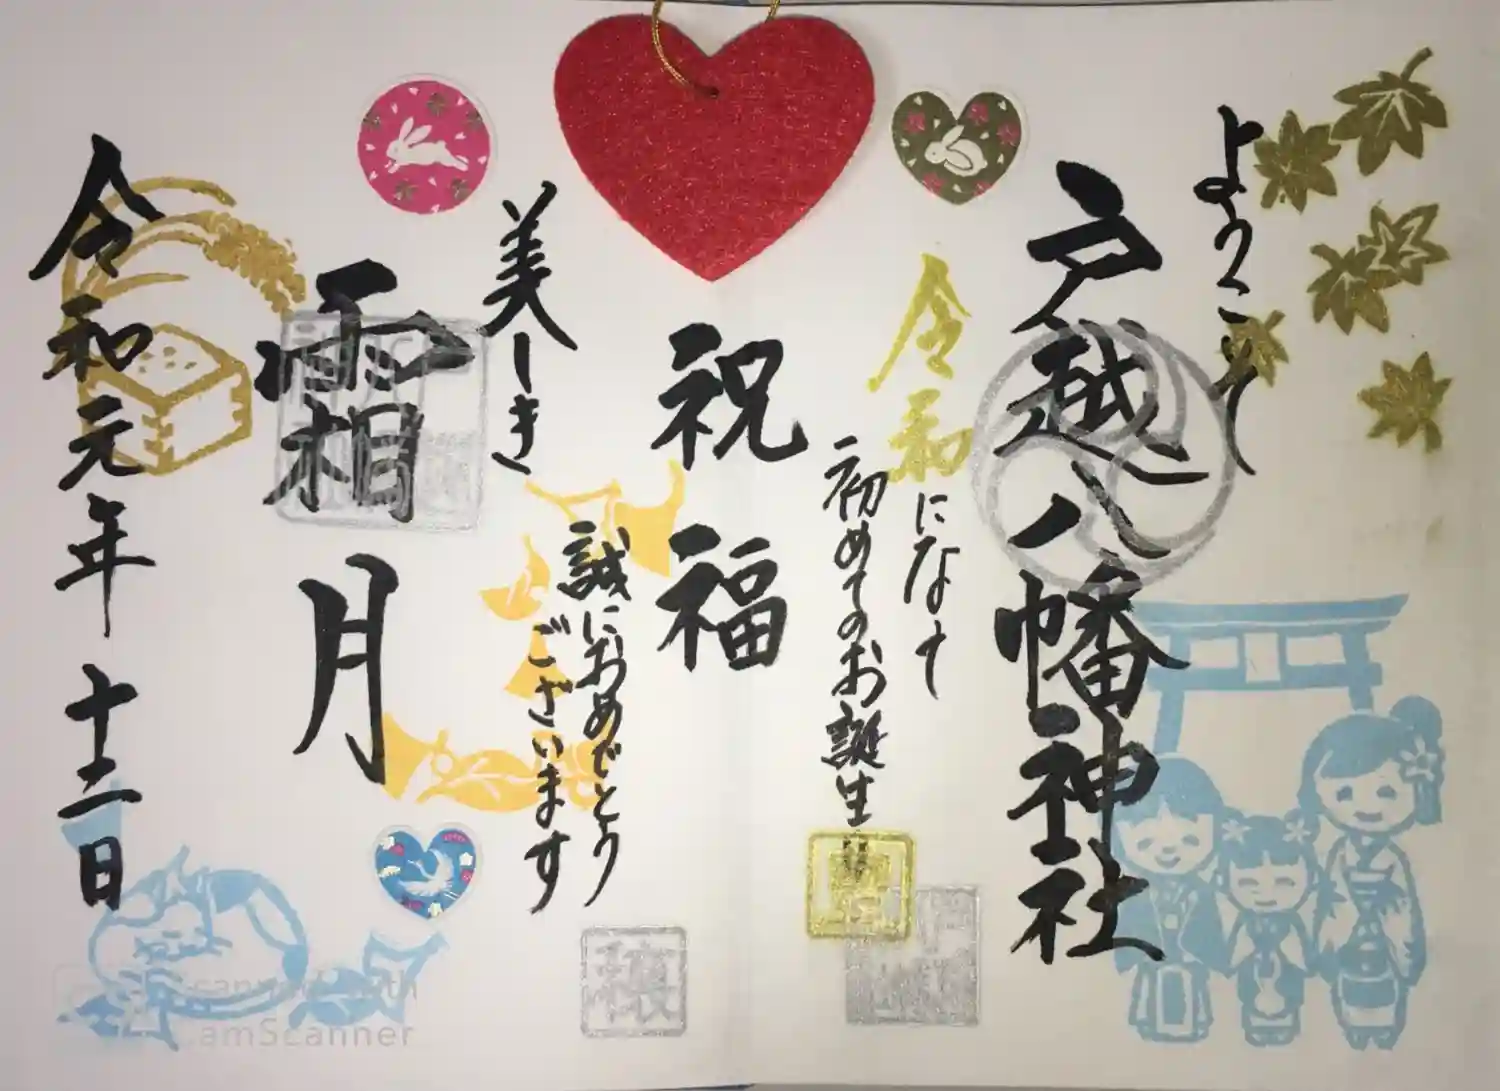 ようこそ
戸越八幡神社
令和になって
初めてのお誕生
祝福
誠におめでとう
ございます
美しき
霜月
令和元年十二日
穂
Scanned with
CamScanner